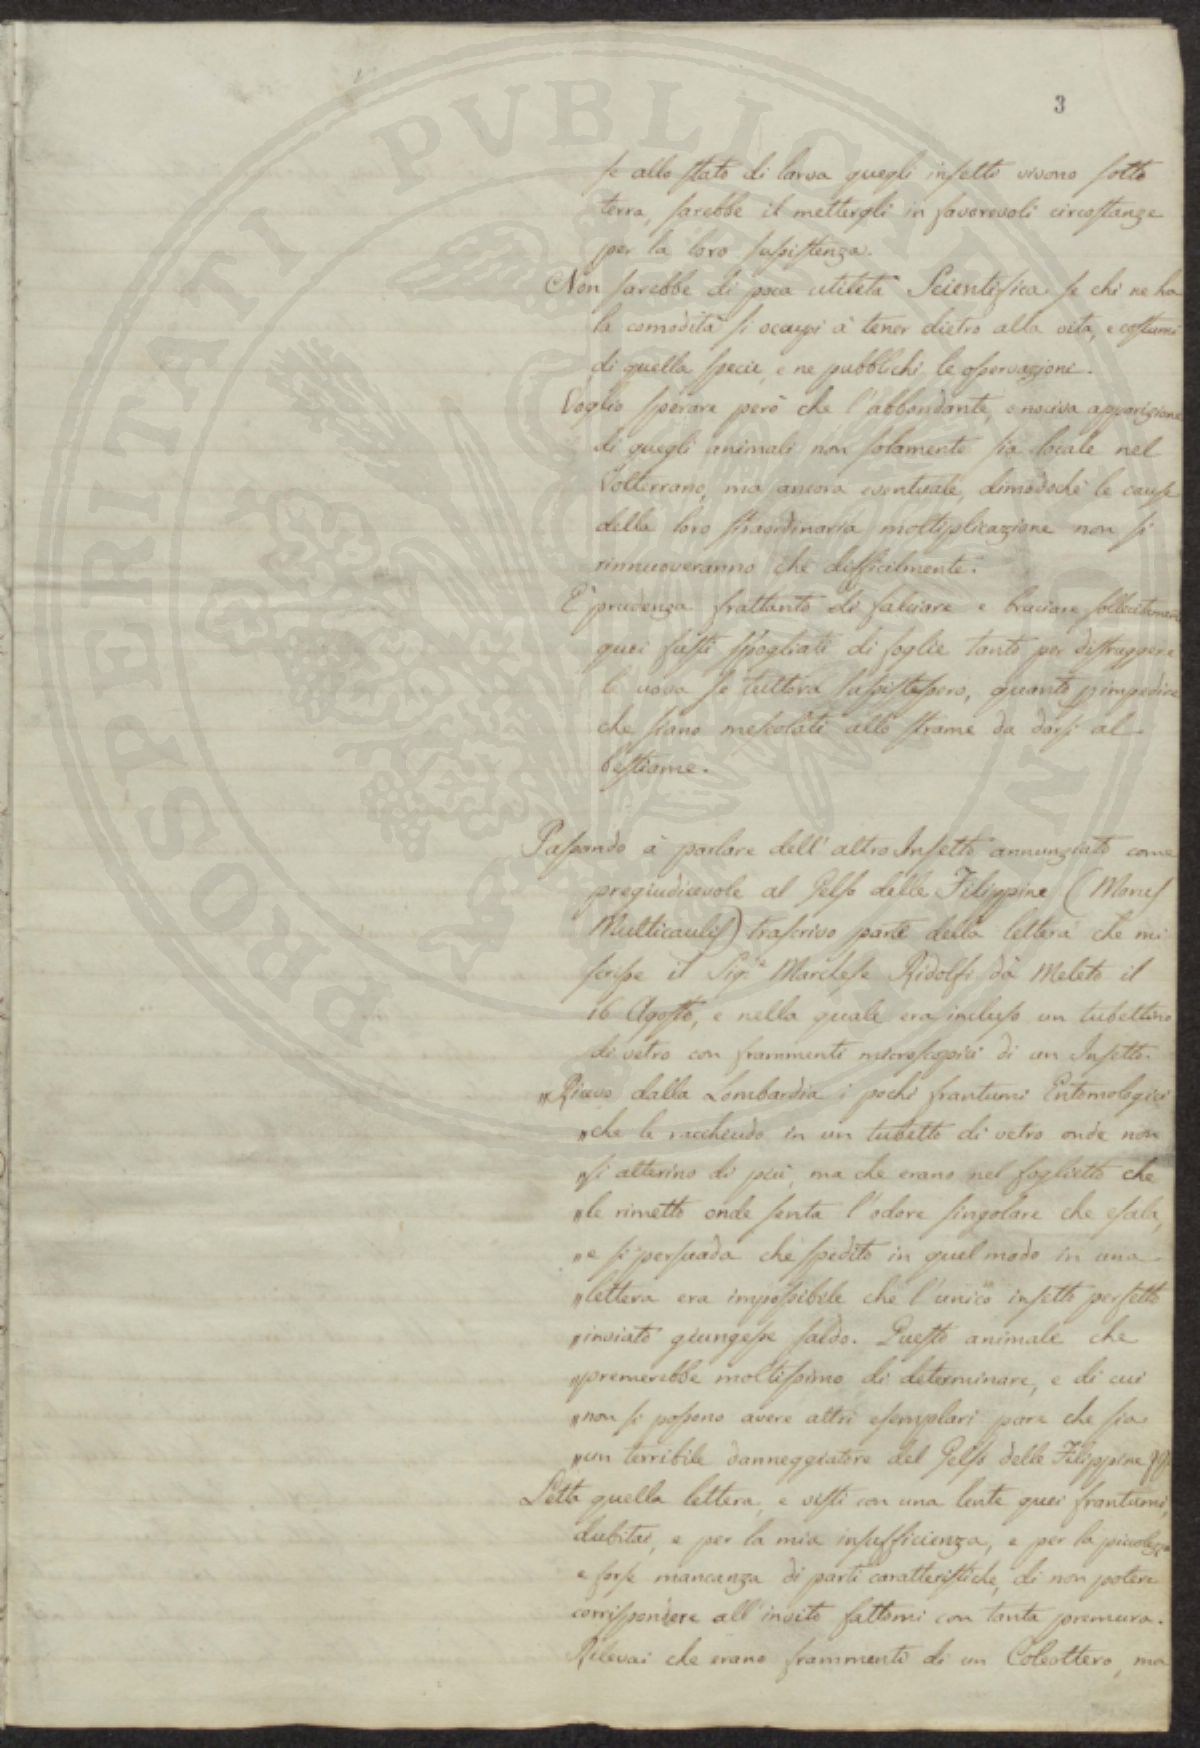 3
se allo stato di larva quegli insetti vivono sotto
terra, sarebbe il mettergli in favorevoli circostanze
per la loro sussistenza.
Non sarebbe di poca utilità Scientifica se chi ne ha
la comodità si occupi à tener dietro alla vita, e costumi
di quella specie, e ne pubblichi le osservazioni.
Voglio sperare però che l'abbondante, e nociva apparizione
di quegli animali non solamente sia locale nel
Volterrano, ma ancora eventuale, dimodochè le cause
della loro straordinaria moltiplicazione non si
rinnuoveranno che difficilmente.
E' prudenza frattanto di falciare e bruciare sollecitamente
quei fusti spogliati di foglie tanto per distruggere
le uova se tuttora sussistessero, quanto p impedire
che siano mescolati allo strame da darsi al
bestiame.
Passando à parlare dell'altro Insetto annunziato come
pregiudicevole al Gelso delle Filippine (Morus
Multicaulis) trascrivo parte della lettera che mi
scrisse il Sig.e Marchese Ridolfi da Meleto il
16 Agosto, e nella quale era incluso un tubettino
di vetro con frammenti microscopici di un Insetto.
„Ricevo dalla Lombardia i pochi frantumi Entomologici
„che le racchiudo in un tubetto di vetro onde non
„si alterino di più, ma che erano nel foglietto che
„le rimetto onde senta l'odore singolare che esala,
„e si persuada che spedito in quel modo in una
„lettera era impossibile che l'unico insetto perfetto
„inviato giungesse saldo. Questo animale che
„premerebbe moltissimo di determinare, e di cui
„non si possono avere altri esemplari pare che sia
„un terribile danneggiatore del Gelso delle Filippine
Letta quella lettera, e visti con una lente quei frantumi,
dubitai, e per la mia insufficienza, e per la piccolezza
e forse mancanza di parti caratteristiche, di non potere
corrispondere all'invito fattomi con tanta premura.
Rilevai che erano frammenti di un Coleottero, ma
PROSPERITATI PUBLICAE